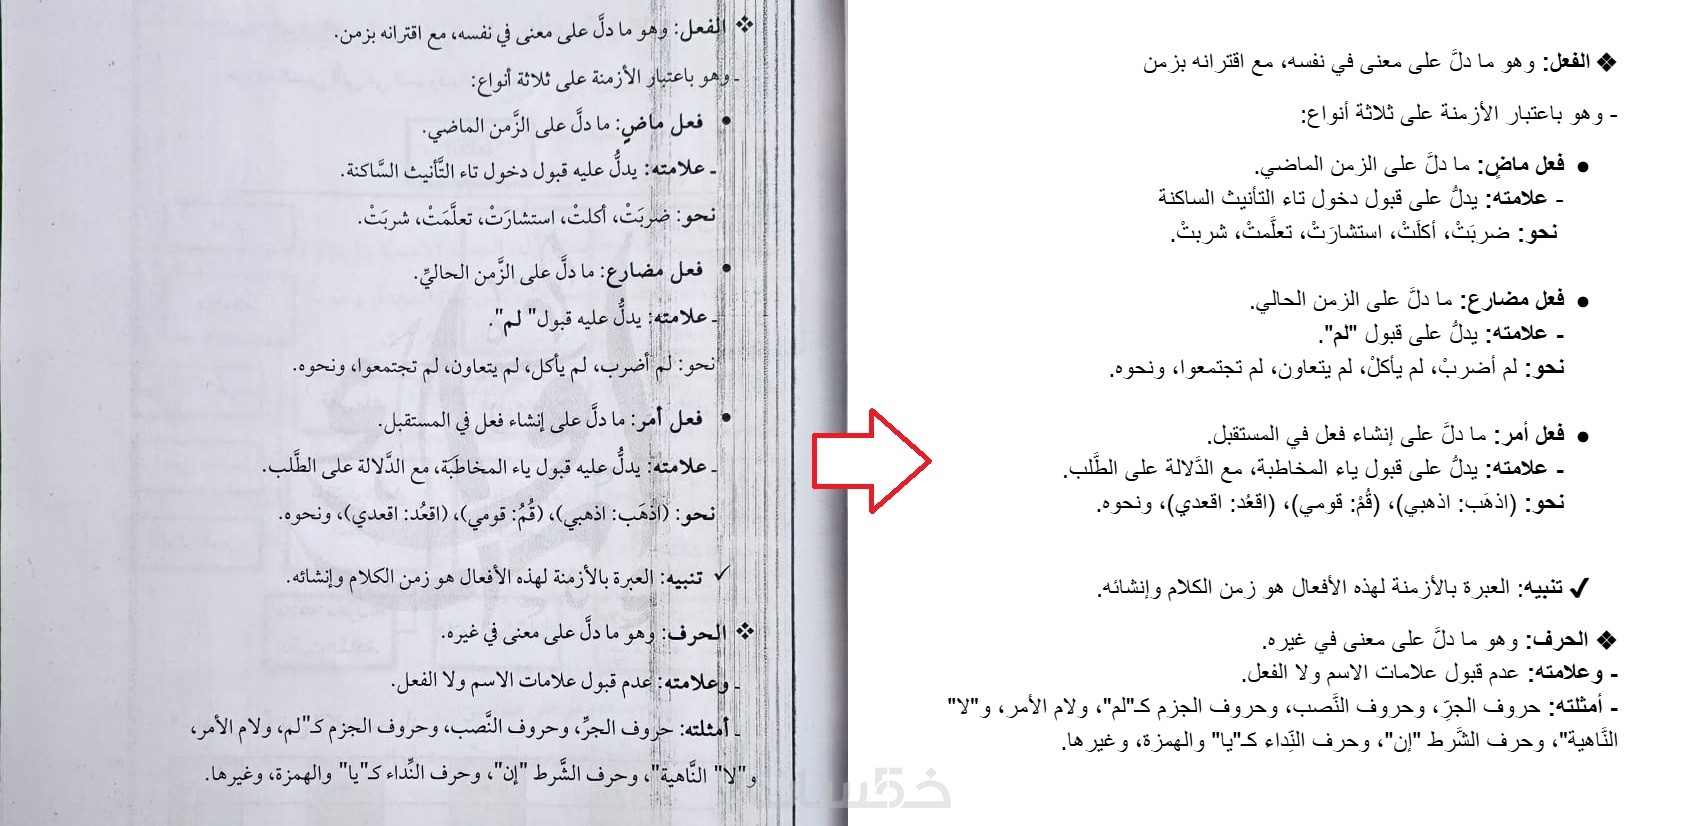 ❖ الفعل: وهو ما دلَّ على معنى في نفسه، مع اقترانه بزمن.
ـ وهو باعتبار الأزمنة على ثلاثة أنواع:
• فعل ماضٍ: ما دلَّ على الزَّمن الماضي.
ـ علامته: يدلُّ عليه قبول دخول تاء التَّأنيث السَّاكنة.
نحو: ضربَتْ، أكلتْ، استشارَتْ، تعلَّمَتْ، شربَتْ.
• فعل مضارع: ما دلَّ على الزَّمن الحاليِّ.
ـ علامته: يدلُّ عليه قبول" لم".
نحو: لم أضرب، لم يأكل، لم يتعاون، لم تجتمعوا، ونحوه.
• فعل أمر: ما دلَّ على إنشاء فعل في المستقبل.
ـ علامته: يدلُّ عليه قبول ياء المخاطَبَة، مع الدَّلالة على الطَّلب.
نحو: (اذْهَب: اذهبي)، (قُمُ: قومي)، (اقعُد: اقعدي)، ونحوه.
✓ تنبيه: العبرة بالأزمنة لهذه الأفعال هو زمن الكلام وإنشائه.
❖ الحرف: وهو ما دلَّ على معنى في غيره.
ـ وعلامته: عدم قبول علامات الاسم ولا الفعل.
ـ أمثلته: حروف الجرِّ، وحروف النَّصب، وحروف الجزم كـ"لم، ولام الأمر،
و"لا" النَّاهية"، وحرف الشَّرط "إن"، وحرف النِّداء كـ"يا" والهمزة، وغيرها.
❖ الفعل: وهو ما دلَّ على معنى في نفسه، مع اقترانه بزمن
- وهو باعتبار الأزمنة على ثلاثة أنواع:
● فعل ماضٍ: ما دلَّ على الزمن الماضي.
- علامته: يدلُّ على قبول دخول تاء التأنيث الساكنة
نحو: ضربَتْ، أكلَتْ، استشارَتْ، تعلَّمتْ، شربتْ.
● فعل مضارع: ما دلَّ على الزمن الحالي.
- علامته: يدلُّ على قبول "لم".
نحو: لم أضربْ، لم يأكلْ، لم يتعاون، لم تجتمعوا، ونحوه.
● فعل أمر: ما دلَّ على إنشاء فعل في المستقبل.
- علامته: يدلُّ على قبول ياء المخاطبة، مع الدَّلالة على الطَّلب.
نحو: (اذهَب: اذهبي)، (قُمْ: قومي)، (اقعُد: اقعدي)، ونحوه.
✔ تنبيه: العبرة بالأزمنة لهذه الأفعال هو زمن الكلام وإنشائه.
❖ الحرف: وهو ما دلَّ على معنى في غيره.
- وعلامته: عدم قبول علامات الاسم ولا الفعل.
- أمثلته: حروف الجرِّ، وحروف النَّصب، وحروف الجزم كـ"لم"، ولام الأمر، و"لا"
النَّاهية"، وحرف الشَّرط "إن"، وحرف النِّداء كـ"يا" والهمزة، وغيرها.
خمسات